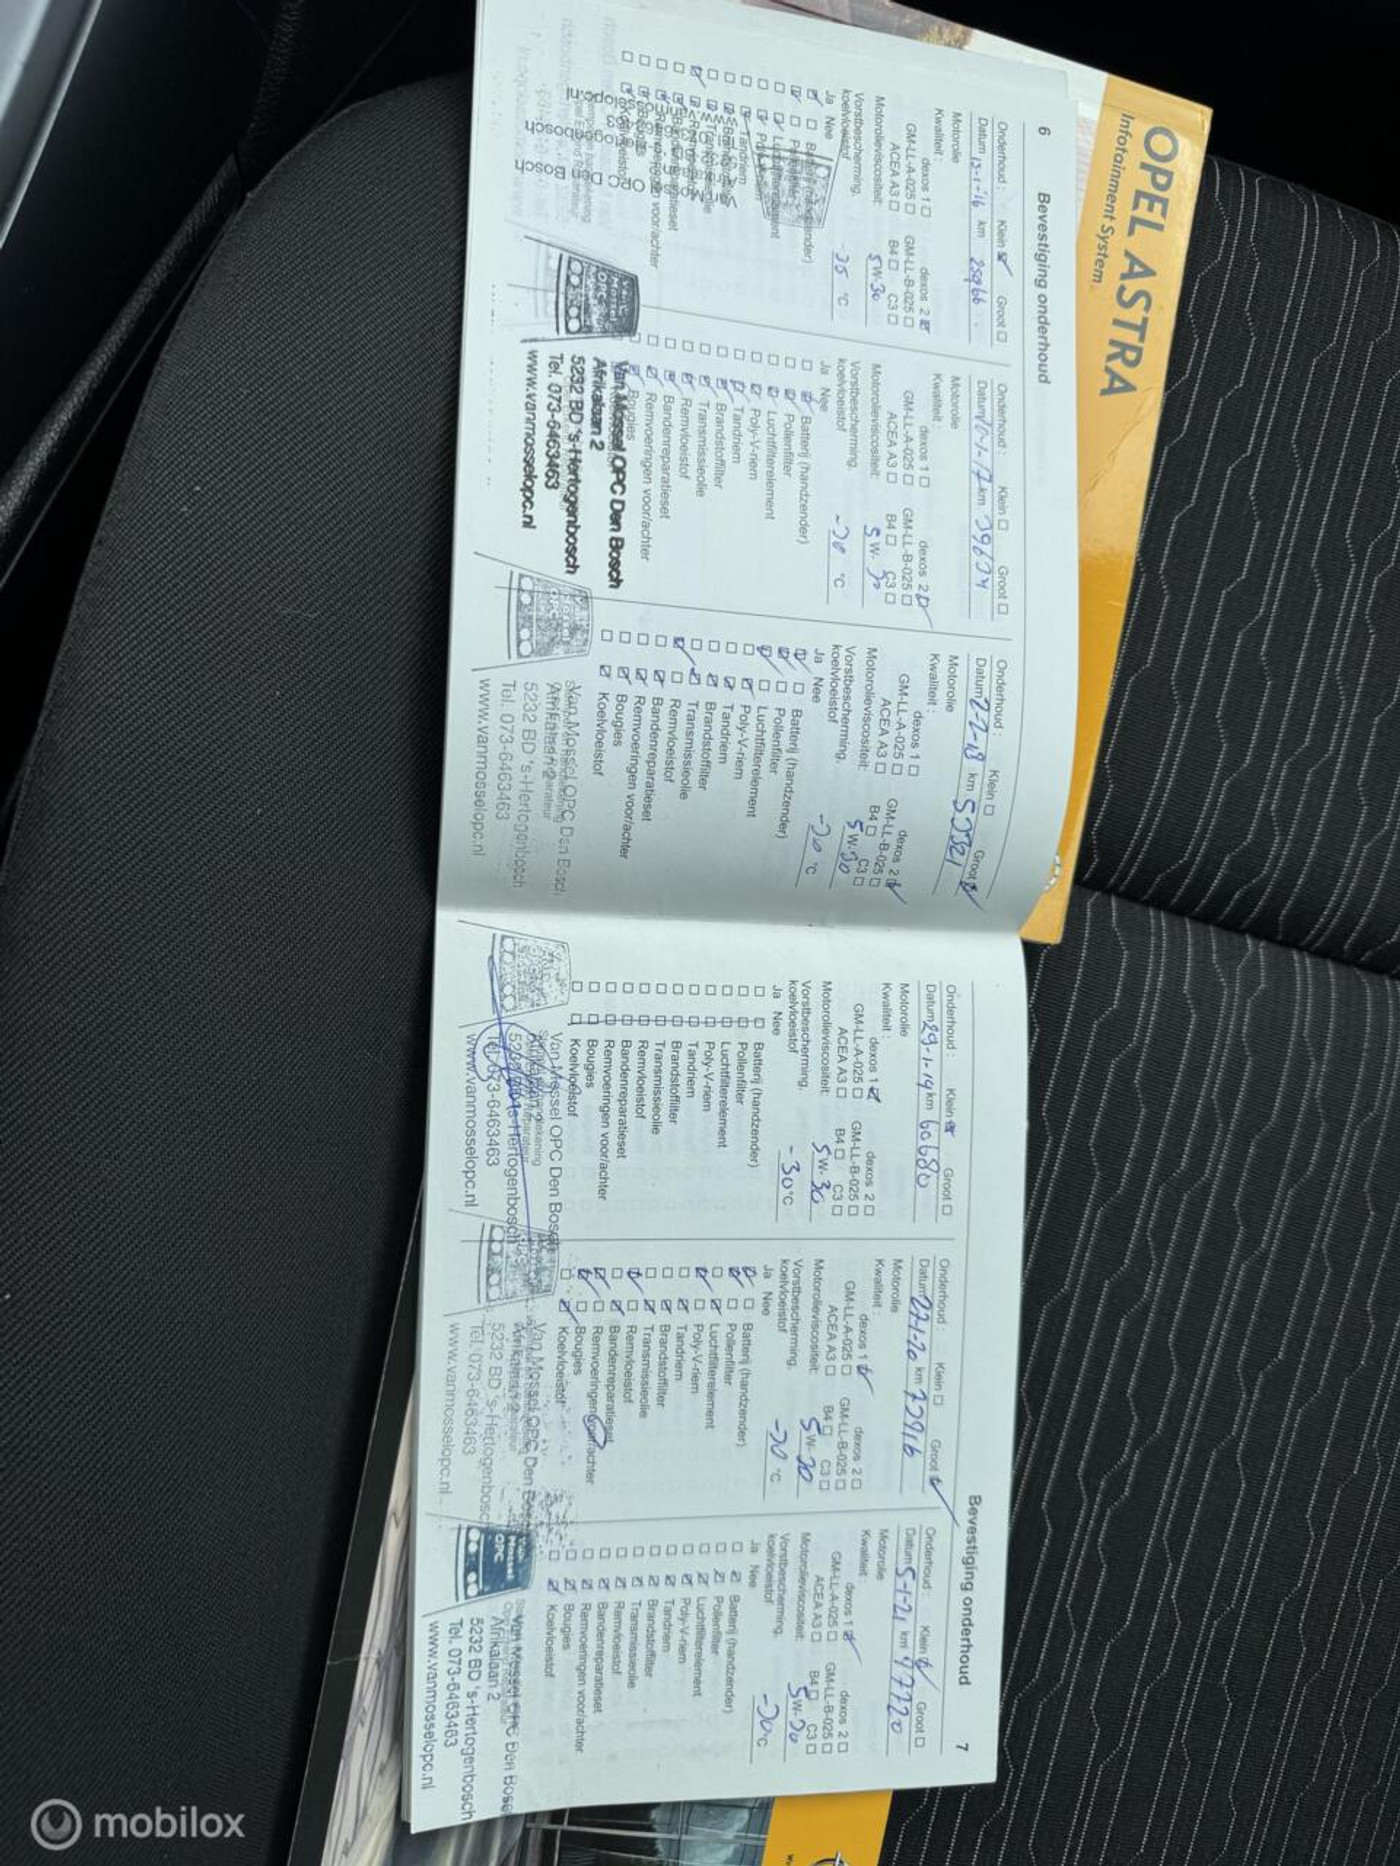 OPEL ASTRA
Infotainment System
6
Bevestiging onderhoud
Onderhoud : Klein Groot
Datum 13-1-'16 km 25966
Motorolie
Kwaliteit : dexos 1 dexos 2
GM-LL-A-025 GM-LL-B-025
ACEA A3 B4 C3
Motorolieviscositeit: 5W-30
Vorstbescherming,
koelvloeistof °C
Ja Nee
Van Mossel OPC Den Bosch
Onderhoud : Klein Groot
Datum km
Motorolie
Kwaliteit : dexos 1 dexos 2
GM-LL-A-025 GM-LL-B-025
ACEA A3 B4 C3
Motorolieviscositeit: 5W-30
Vorstbescherming,
koelvloeistof -30 °C
Ja Nee
Batterij (handzender)
Pollenfilter
Luchtfilterelement
Poly-V-riem
Tandriem
Brandstoffilter
Transmissieolie
Remvloeistof
Bandenreparatieset
Remvoeringen voor/achter
Bougies
Van Mossel OPC Den Bosch
Afrikalaan 2
5232 BD 's-Hertogenbosch
Tel. 073-6463463
www.vanmosselopc.nl
Onderhoud : Klein Groot
Datum 2-2-18 km
Motorolie
Kwaliteit : dexos 1 dexos 2
GM-LL-A-025 GM-LL-B-025
ACEA A3 B4 C3
Motorolieviscositeit: 5W-30
Vorstbescherming,
koelvloeistof -30 °C
Ja Nee
Batterij (handzender)
Pollenfilter
Luchtfilterelement
Poly-V-riem
Tandriem
Brandstoffilter
Transmissieolie
Remvloeistof
Bandenreparatieset
Remvoeringen voor/achter
Bougies
Koelvloeistof
Van Mossel OPC Den Bosch
Afrikalaan 2
5232 BD 's-Hertogenbosch
Tel. 073-6463463
www.vanmosselopc.nl
Bevestiging onderhoud
7
Onderhoud : Klein Groot
Datum 29-1-19 km 60680
Motorolie
Kwaliteit : dexos 1 dexos 2
GM-LL-A-025 GM-LL-B-025
ACEA A3 B4 C3
Motorolieviscositeit: 5W-30
Vorstbescherming,
koelvloeistof -30 °C
Ja Nee
Batterij (handzender)
Pollenfilter
Luchtfilterelement
Poly-V-riem
Tandriem
Brandstoffilter
Transmissieolie
Remvloeistof
Bandenreparatieset
Remvoeringen voor/achter
Bougies
Koelvloeistof
Van Mossel OPC Den Bosch
Afrikalaan 2
's-Hertogenbosch
Tel. 073-6463463
www.vanmosselopc.nl
Onderhoud : Klein Groot
Datum 27-1-20 km
Motorolie
Kwaliteit : dexos 1 dexos 2
GM-LL-A-025 GM-LL-B-025
ACEA A3 B4 C3
Motorolieviscositeit: 5W-30
Vorstbescherming,
koelvloeistof -30 °C
Ja Nee
Batterij (handzender)
Pollenfilter
Luchtfilterelement
Poly-V-riem
Tandriem
Brandstoffilter
Transmissieolie
Remvloeistof
Bandenreparatieset
Remvoeringen voor/achter
Bougies
Koelvloeistof
Van Mossel OPC Den Bosch
Afrikalaan 2
5232 BD 's-Hertogenbosch
Tel. 073-6463463
www.vanmosselopc.nl
Onderhoud : Klein Groot
Datum 5-1-21 km
Motorolie
Kwaliteit : dexos 1 dexos 2
GM-LL-A-025 GM-LL-B-025
ACEA A3 B4 C3
Motorolieviscositeit: 5W-30
Vorstbescherming,
koelvloeistof -30 °C
Ja Nee
Batterij (handzender)
Pollenfilter
Luchtfilterelement
Poly-V-riem
Tandriem
Brandstoffilter
Transmissieolie
Remvloeistof
Bandenreparatieset
Remvoeringen voor/achter
Bougies
Koelvloeistof
Van Mossel OPC
Van Mossel OPC Den Bosch
Afrikalaan 2
5232 BD 's-Hertogenbosch
Tel. 073-6463463
www.vanmosselopc.nl
mobilox